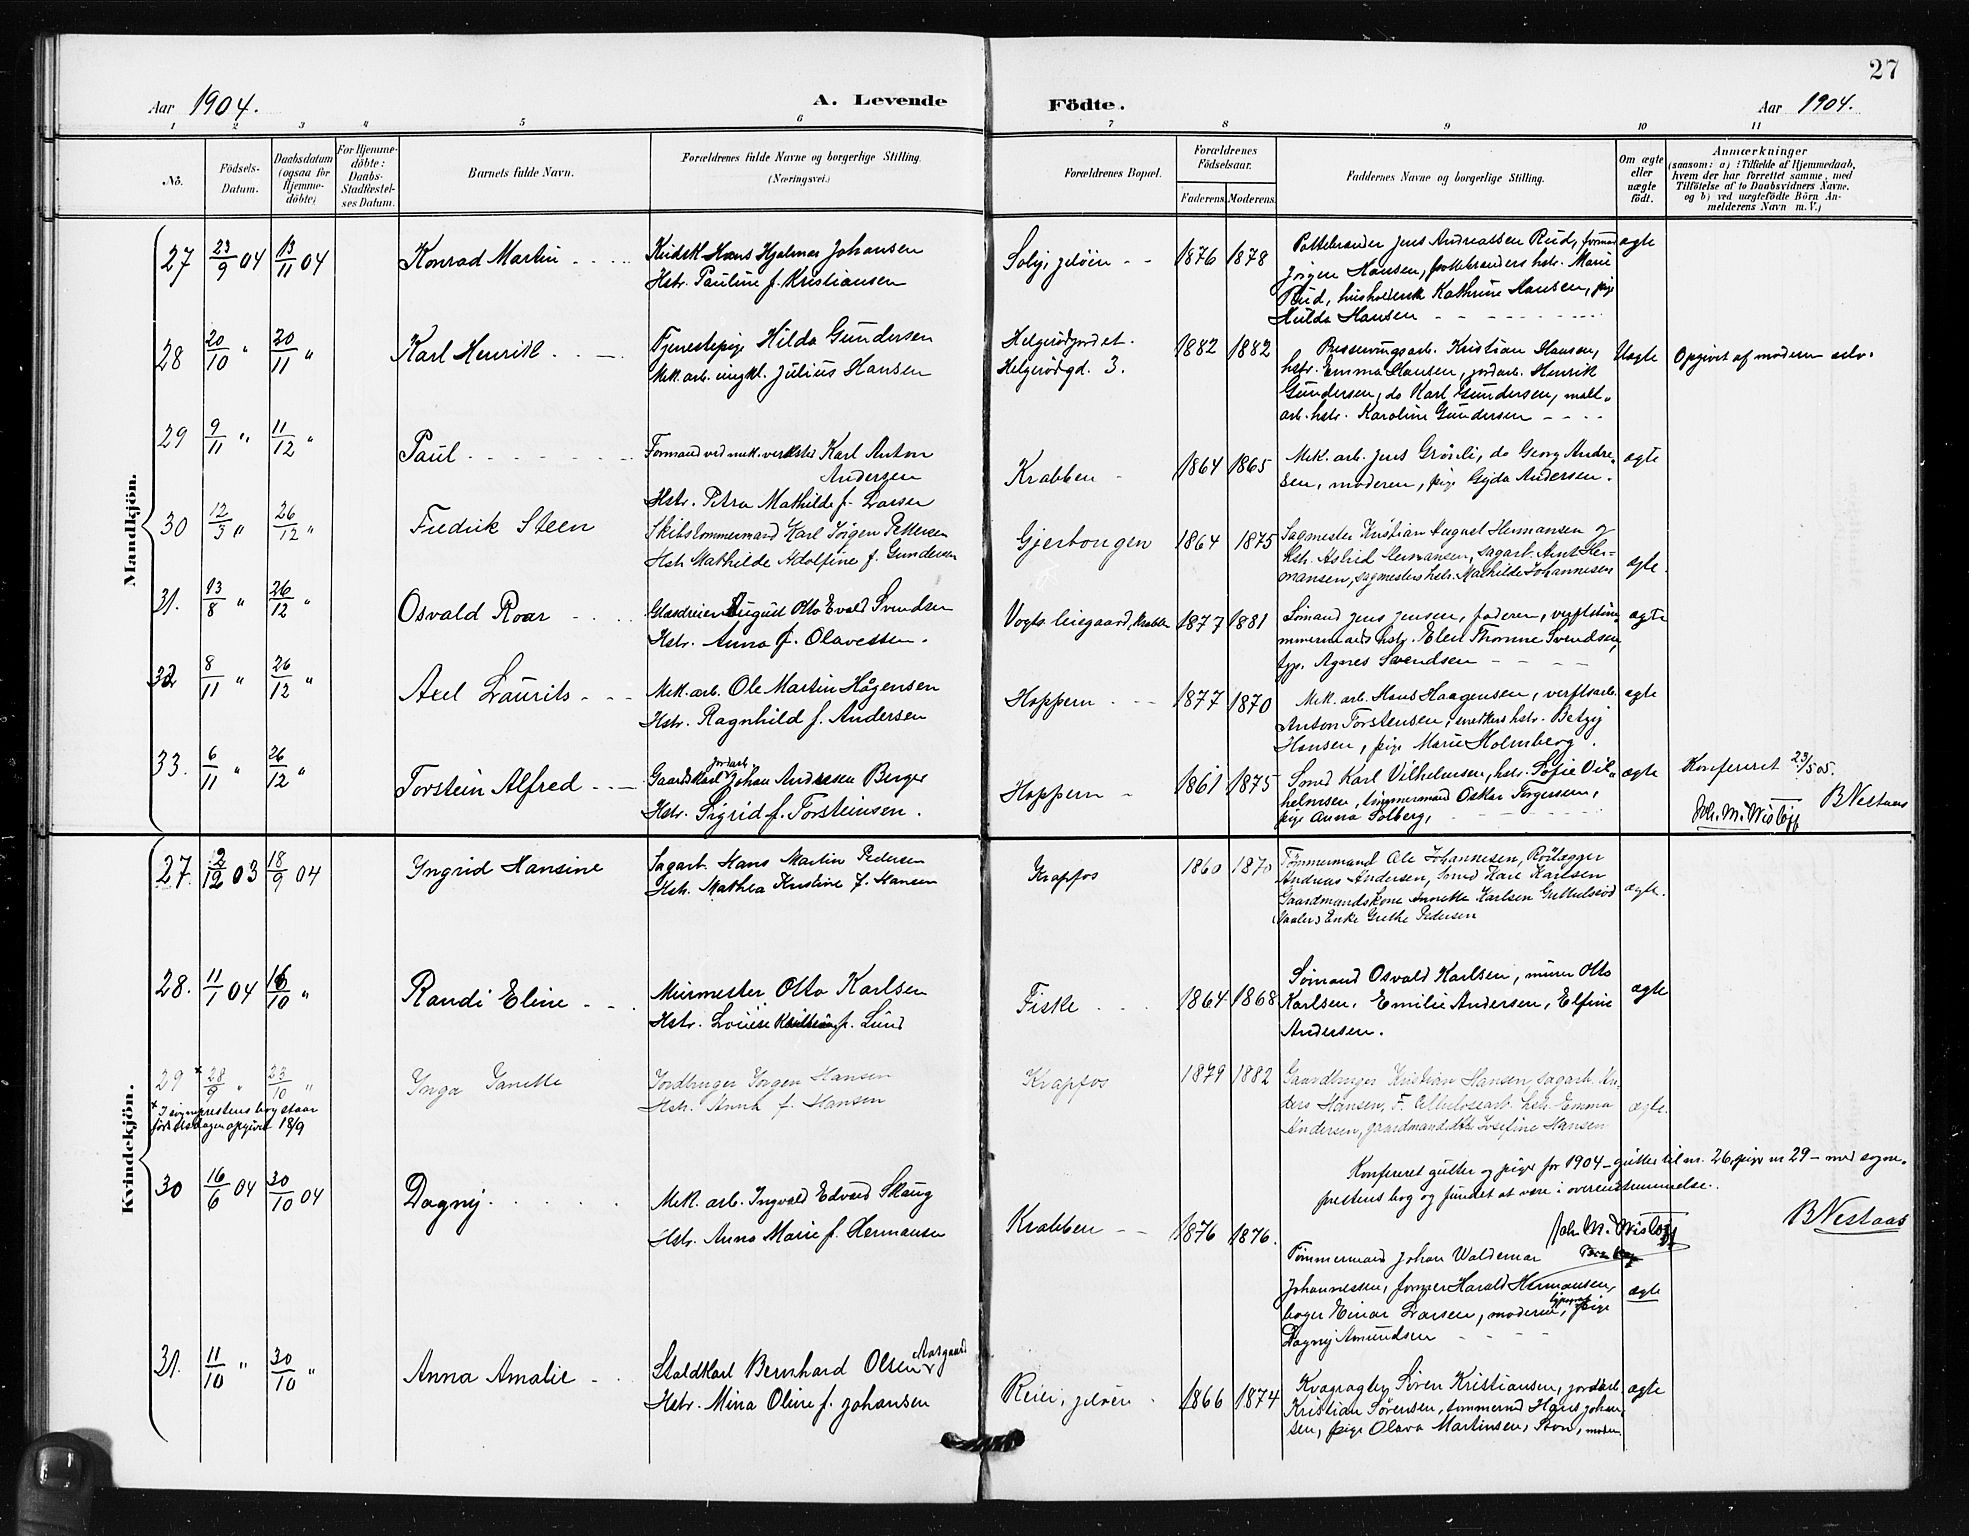 27
Aar 1904. A. Levende Födte. Aar 1904.
1 2 3 4 5 6 7 8 9 10 11
No.
Födsels-Datum.
Daabsdatum (ogsaa for Hjemme-döbte)
For Hjemme-döbte: Daabs-Stadfæstel-ses Datum.
Barnets fulde Navn.
Forældrenes fulde Navne og borgerlige Stilling. (Næringsvei.)
Forældrenes Bopæl.
Forældrenes Födselsaar.
Faderens. Moderens.
Faddernes Navne og borgerlige Stilling.
Om ægte eller uægte födt.
Anmærkninger
(saasom: a) i Tilfælde af Hjemmedaab, hvem der har forrettet samme, med Tilföielse af to Daabsvidners Navne, og b) ved uægtefödte Börn An-melderens Navn m. V.)
Mandkjön.
27 23/9 04 13/11 04 Konrad Martin Hans Hjalmar Johansen
Hstr. Pauline f. Kristiansen
Jeløen 1876 1878 Jens Andreassen Rud, ægte
Jørgen Hansen, hstr. Marie
Rud, Kathrine Hansen, pige
Hulda Hansen
28 20/10 " 20/11 " Karl Henrik Tjenestepige Hilda Gundersen
Mek. arb. ungkl. Julius Hansen
Helgerødgd. 3. 1882 1882 Kristian Hansen, Uægte Opgivet af moderen selv.
hstr. Emma Hansen, jordarb. Henrik
Gundersen, do Karl Gundersen,
arb. hstr. Karoline Gundersen
29 9/11 " 11/12 " Paul Formand ved mek. verksted Karl Anton
Andersen
Hstr. Petra Mathilde f. Larsen
Krabben 1864 1865 Mek. arb. Jens Grønli, do Georg Andre- ægte
sen, moderen, pige Gyda Andersen.
30 12/3 " 26/12 " Fredrik Steen Skibstømmermand Karl Jørgen Pettersen
Hstr. Mathilde Adolfine f. Gundersen
1864 1875 Sagmester Kristian August Hermansen og
hstr. Astrid Hermansen, sagarb. Arnt Her-
mansen, sagmesters hstr. Mathilde Johannesen ægte.
31. 13/8 " 26/12 " Osvald Roar August Otto Evald Svendsen
Hstr. Anna f. Olavessen.
Krabben 1877 1881 Sømand Jens Jensen, faderen, ægte
mmermands hstr. Elen Thomine Svendsen,
Agnes Svendsen
32 8/11 " 26/12 " Axel Laurits Mek. arb. Ole Martin Hågensen
Hstr. Ragnhild f. Andersen
Hoppern 1877 1870 Mek. arb. Hans Haagensen, verftsarb. ægte
Anton Torstensen, snedkers hstr. Betzy
Hansen, pige Marie Holmberg.
33. 6/11 " 26/12 " Torstein Alfred Gaardskarl jordarb. Johan Andresen Berger
Hstr. Sigrid f. Torsteinsen.
Hoppern 1861 1875 Smed Karl Vilhelmsen, hstr. Sofie Vil- ægte Konfereret 23/5 05.
helmsen, tømmermand Oskar Torgersen, Joh. M. Wisløff BNestaas
pige Anna Solberg,
Kvindekjön.
27. 2/12 03 18/9 04 Yngrid Hansine Sagarb. Hans Martin Pedersen
Hstr. Mathea Kristine f. Hansen
Krapfos 1860 1870 Tømmermand Ole Johannesen, Rørlægger
Andreas Andersen, Smed Karl Karlsen
Gaardmandskone Annette Karlsen ægte.
Enke Grethe Pedersen
28. 11/1 04 16/10 " Randi Eline Murmester Otto Karlsen
Hstr. Lovise f. Lund
Fiske 1864 1868 Sømand Osvald Karlsen, murer Otto ægte
Karlsen, Emilie Andersen, Elfine
Andersen.
29 * 28/9 " 23/10 " Ynga Janette Jordbruger Jørgen Hansen
Hstr. Anna f. Hansen
* I sogneprestens bog staar
fødselsdagen opgivet 18/9
Krapfos 1879 1882 Gaardbruger Kristian Hansen, sagarb. An-
ders Hansen, hstr. Emma ægte.
Andersen, Josefine Hansen
Konfereret gutter og piger for 1904 - gutter til nr. 26, piger nr 29 - med sogne-
prestens bog og fundet at være i overensstemmelse.
Joh. M. Wisløff BNestaas
30 16/6 04 30/10 04 Dagny Mek. arb. Ingvald Edvard Skaug
Hstr. Anna Marie f. Hermansen
Krabben 1876 1876. Tømmermand Johan Waldemar
Johannessen, former Harald Hermansen, ægte
Einar Larsen, moderen, pige
Dagny Amundsen
31. 11/10 " 30/10 " Anna Amalie Staldkarl Bernhard Olsen Aasgaard
Hstr. Mina Oline f. Johansen
Reier, Jeløen 1866 1874 Søren Kristiansen, jordarb. ægte
Kristian Sørensen, Hans Johan-
sen, pige Olava Martinsen, moder.